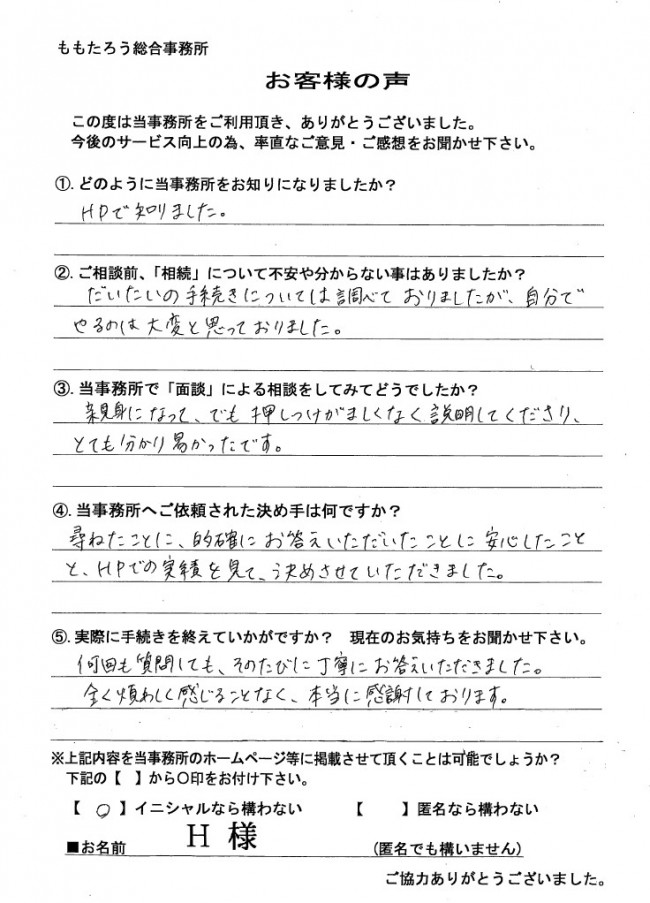 ももたろう総合事務所
お客様の声
この度は当事務所をご利用頂き、ありがとうございました。
今後のサービス向上の為、率直なご意見・ご感想をお聞かせ下さい。
①. どのように当事務所をお知りになりましたか？
HPで知りました。
②. ご相談前、「相続」について不安や分からない事はありましたか？
だいたいの手続きについては調べておりましたが、自分で
やるのは大変と思っておりました。
③. 当事務所で「面談」による相談をしてみてどうでしたか？
親身になって、でも押しつけがましくなく説明してくださり、
とても分かり易かったです。
④. 当事務所へご依頼された決め手は何ですか？
尋ねたことに、的確にお答えいただいたことに安心したこと
と、HPでの実績を見て、決めさせていただきました。
⑤. 実際に手続きを終えていかがですか？　現在のお気持ちをお聞かせ下さい。
何回も質問しても、そのたびに丁寧にお答えいただきました。
全く煩わしく感じることなく、本当に感謝しております。
※上記内容を当事務所のホームページ等に掲載させて頂くことは可能でしょうか？
下記の【　】から〇印をお付け下さい。
【 〇 】イニシャルなら構わない　　【　　】匿名なら構わない
■お名前　H 様　(匿名でも構いません)
ご協力ありがとうございました。